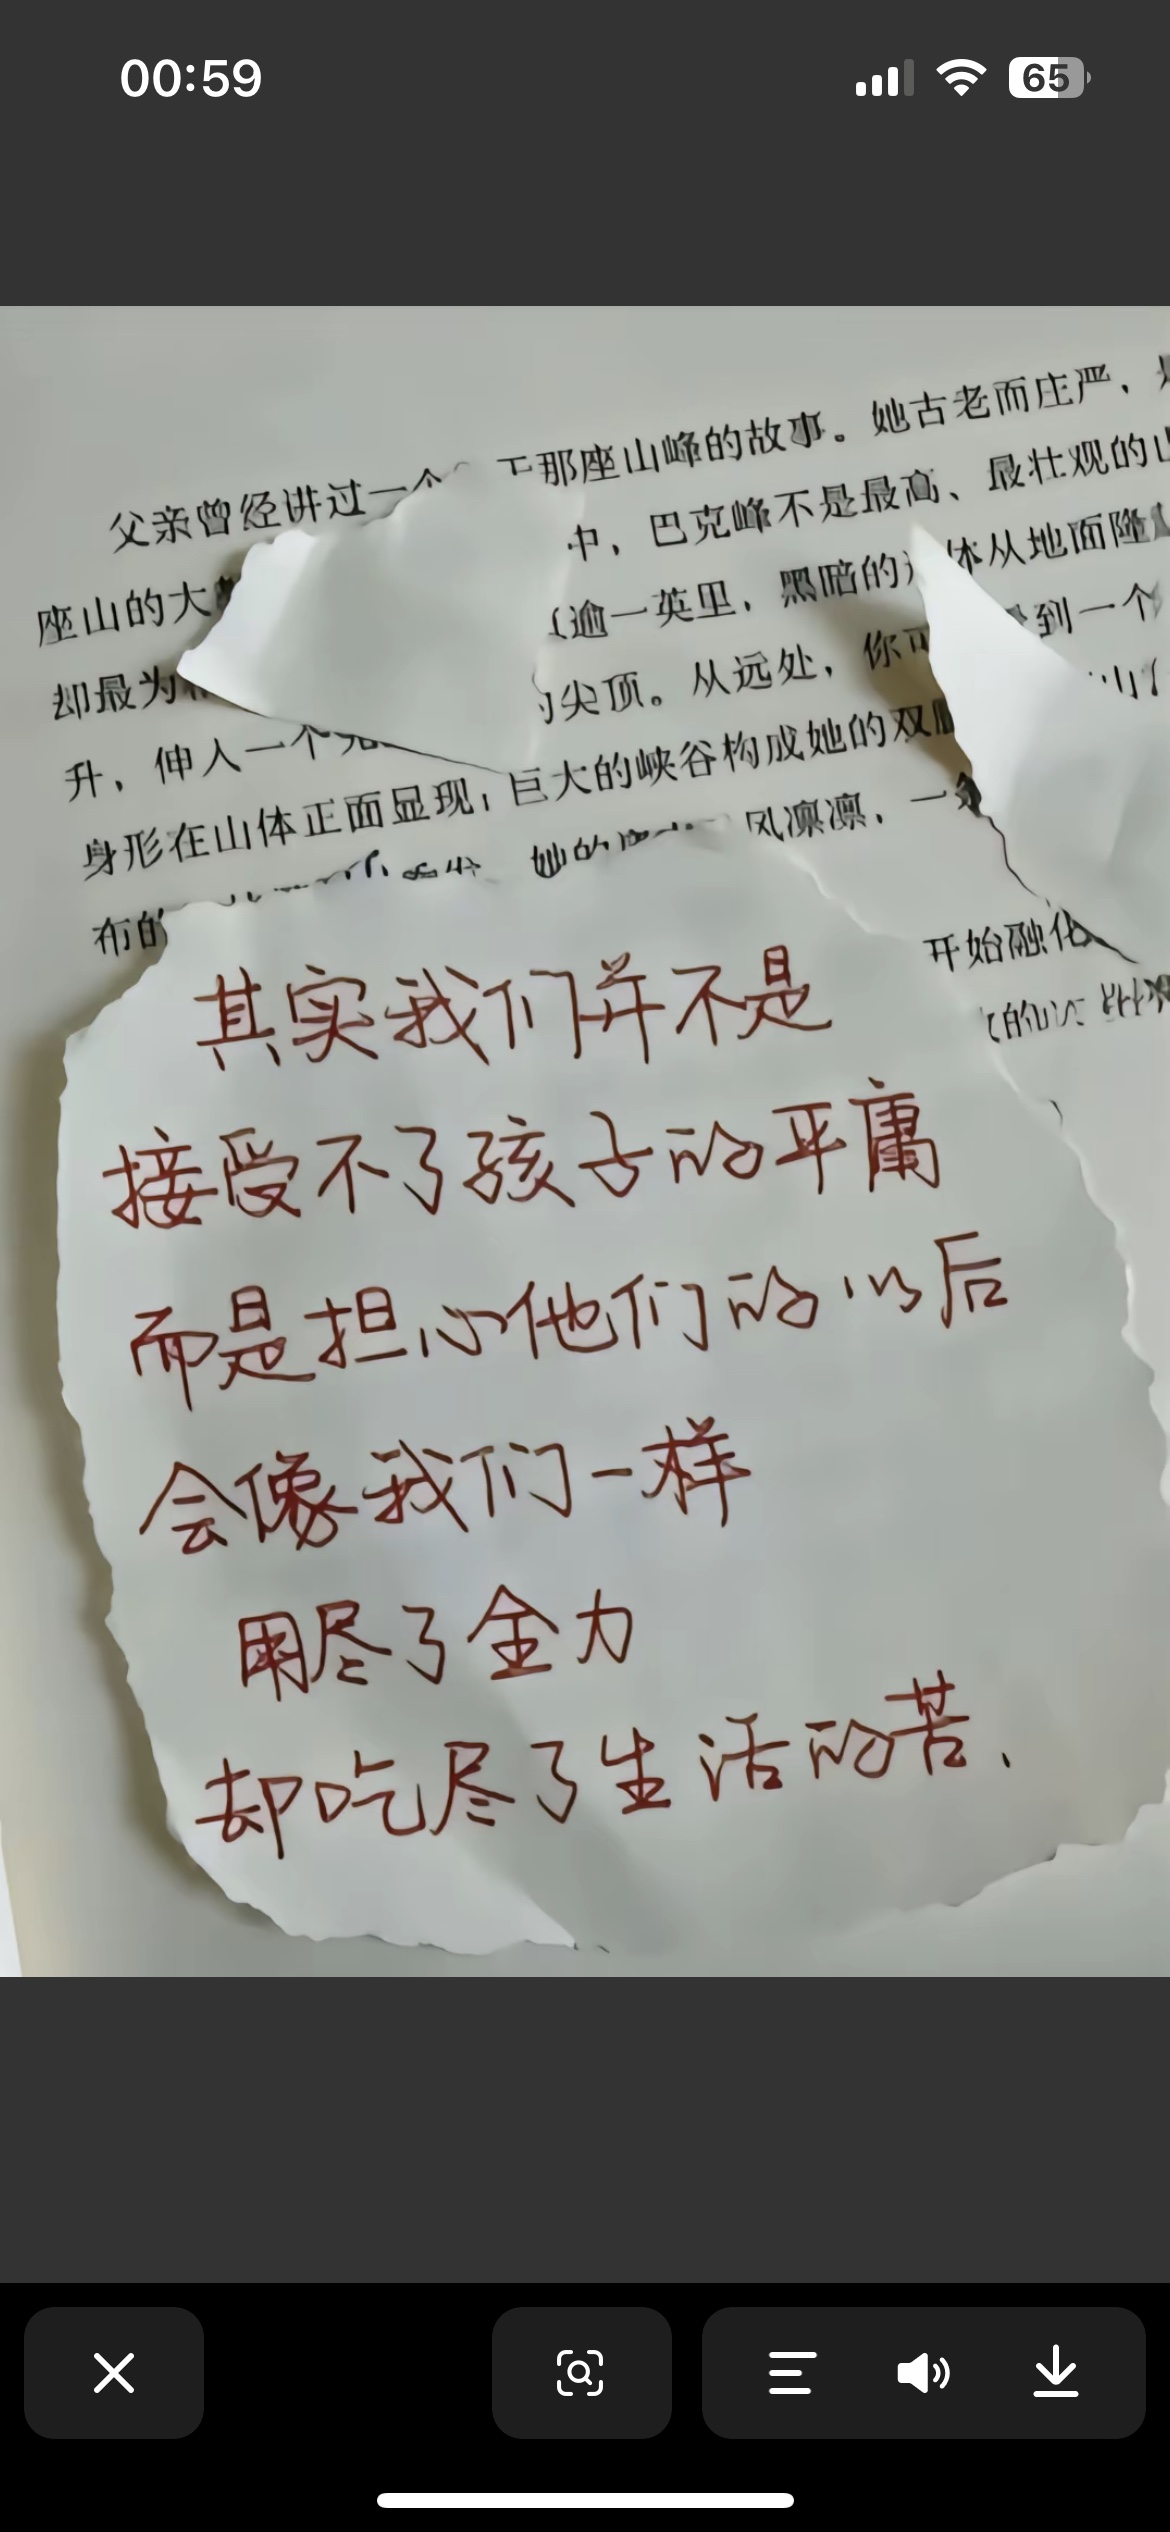 00:59
65
父亲曾经讲过一个 那座山峰的故事。她古老而庄严、
座山的大 中，巴克峰不是最高、最壮观的
却最为 逾一英里，黑暗的 体从地面隆
升，伸入一个 尖顶。从远处，你可 到一个
身形在山体正面显现；巨大的峡谷构成她的双
布的 她的 风凛凛，一
开始融化
的
其实我们并不是
接受不了孩子的平庸
而是担心他们的以后
会像我们一样
用尽了全力
却吃尽了生活的苦、